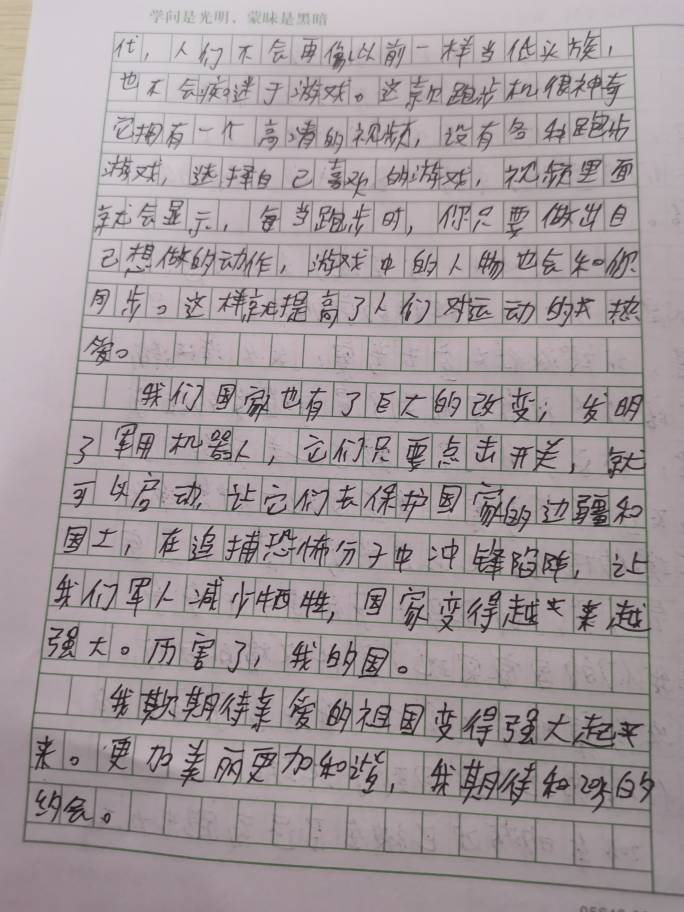 学问是光明，蒙昧是黑暗
代，人们不会再像以前一样当低头族，
也不会痴迷于游戏。这款跑步机很神奇
它拥有一个高清的视频，设有各种跑步
游戏，选择自己喜欢的游戏，视频里面
就会显示，每当跑步时，你只要做出自
己想做的动作，游戏中的人物也会和你
同步。这样就提高了人们对运动的热
爱。
我们国家也有了巨大的改变；发明
了军用机器人，它们只要点击开关，就
可以启动，让它们去保护国家的边疆和
国土，在追捕恐怖分子中冲锋陷阵，让
我们军人减少牺牲，国家变得越来越
强大。厉害了，我的国。
我期待亲爱的祖国变得强大起
来。更加美丽更加和谐，我期待和的
约会。